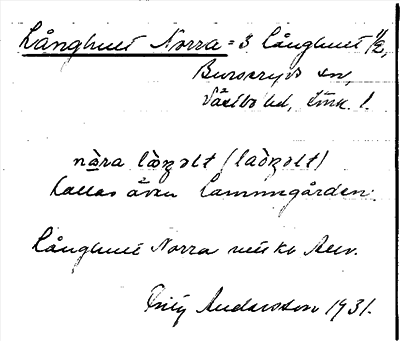 Långhult Norra = 3. Långhult 1/2,
Burseryds sn,
Västbo hd, Jönk. l.
nàra làŋəlt (laòŋəlt)
kallas även Lammgården.
Långhult Norra
Andersson 1931.